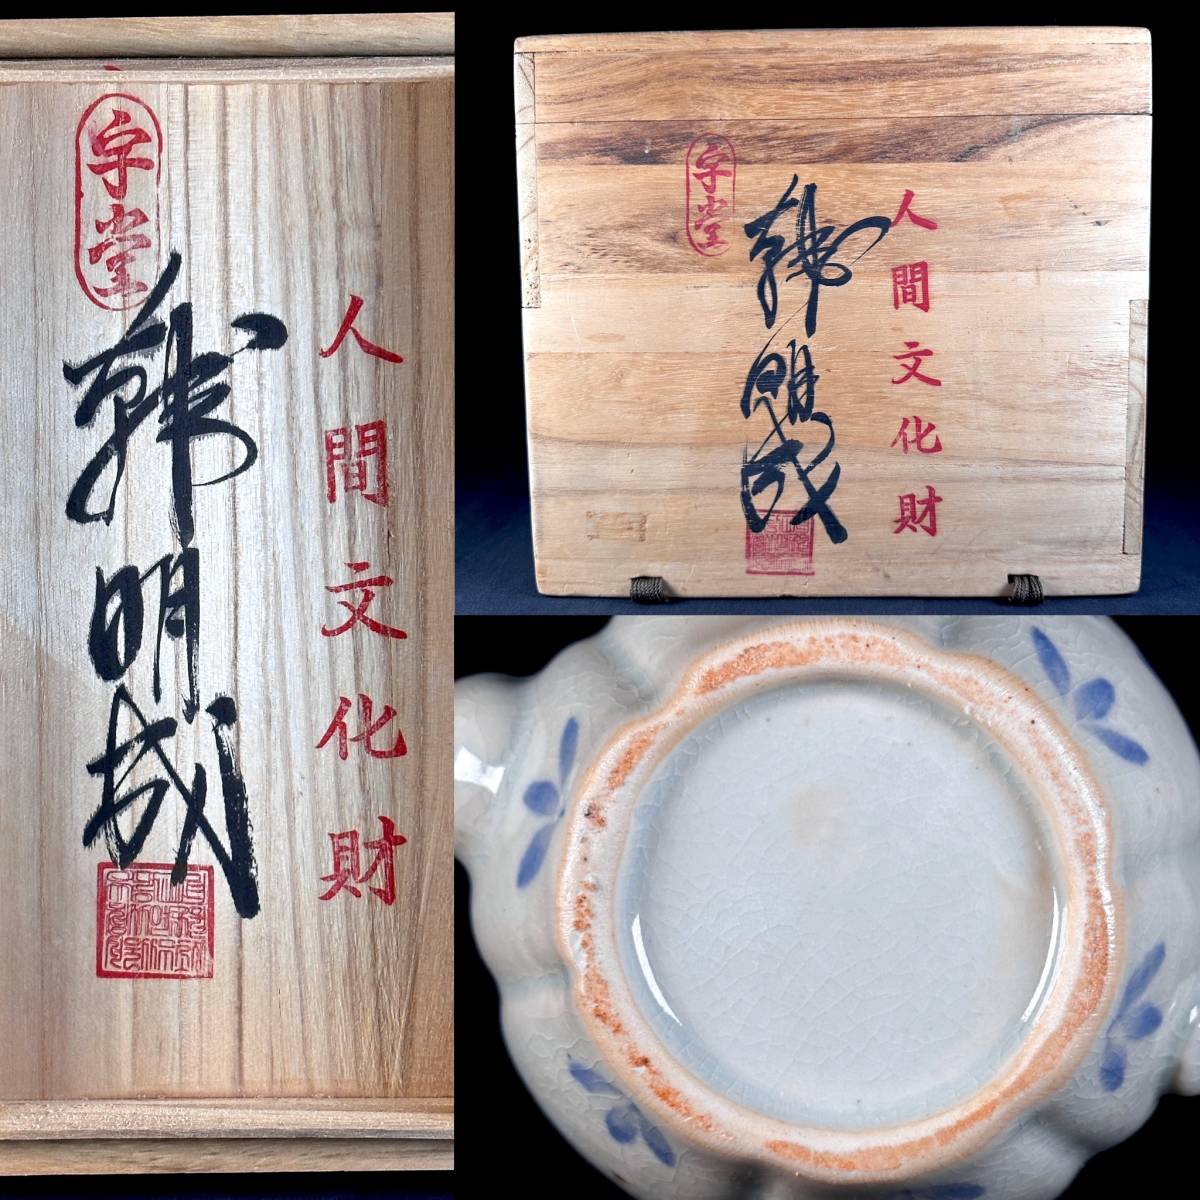 人間文化財
韓明成
宇堂
人間文化財
韓明成
宇堂